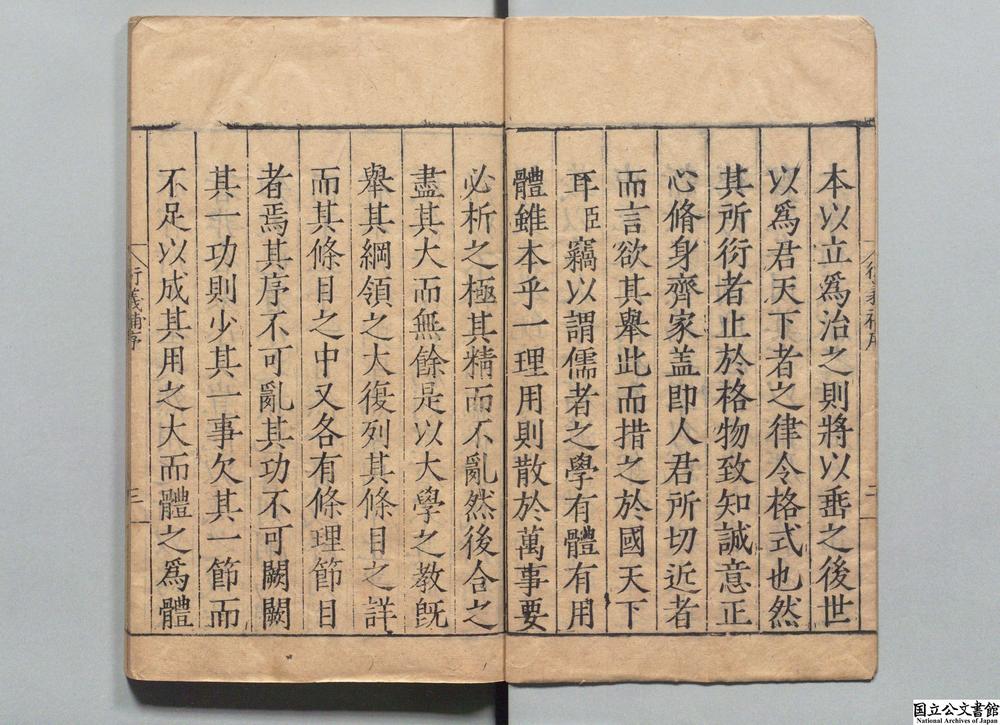 本以立爲治之則將以垂之後世
以爲君天下者之律令格式也然
其所衍者止於格物致知誠意正
心脩身齊家盖即人君所切近者
而言欲其舉此而措之於國天下
耳臣竊以謂儒者之學有體有用
體雖本乎一理用則散於萬事要
必析之極其精而不亂然後合之
盡其大而無餘是以大學之教旣
舉其綱領之大復列其條目之詳
而其條目之中又各有條理節目
者焉其序不可亂其功不可闕闕
其一功則少其一事欠其一節而
不足以成其用之大而體之爲體
衍義補序
三
国立公文書館
National Archives of Japan